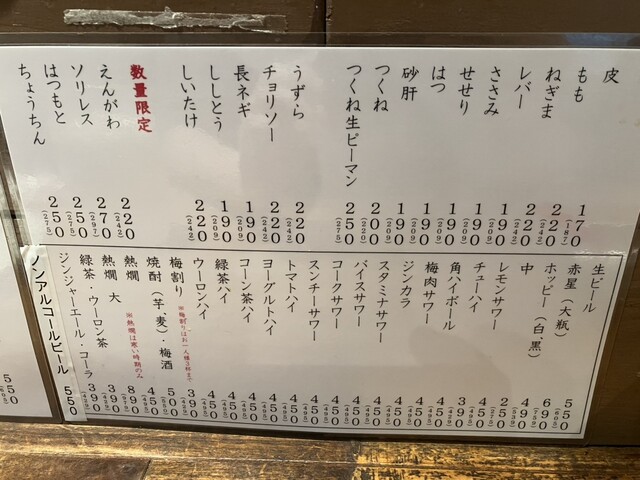 皮 170 (187)
もも 220 (242)
ねぎま 220 (242)
レバー 190 (209)
ささみ 190 (209)
せせり 190 (209)
はつ 190 (209)
砂肝 190 (209)
つくね 200
つくね生ピーマン 250 (275)
うずら 220 (242)
チョリソー 220 (242)
長ネギ 190 (209)
ししとう 190 (209)
しいたけ 220 (242)
数量限定
えんがわ 220 (242)
ソリレス 270 (297)
はつもと 250 (275)
ちょうちん 250 (275)
生ビール 550 (605)
赤星（大瓶） 690 (759)
ホッピー（白・黒） 490 (539)
中 250 (275)
レモンサワー 450 (495)
チューハイ 390 (429)
角ハイボール 450 (495)
梅肉サワー 450 (495)
ジンカラ 450 (495)
スタミナサワー 450 (495)
バイスサワー 450 (495)
コークサワー 450 (495)
スンチーサワー 450 (495)
トマトハイ 450 (495)
ヨーグルトハイ 450 (495)
コーン茶ハイ 450 (495)
緑茶ハイ 450 (495)
ウーロンハイ 450 (495)
梅割り 390
※梅割りはお一人様3杯まで
焼酎（芋・麦）・梅酒 500
熱燗 450 (495)
※熱燗は寒い時期のみ
熱燗 大 890
緑茶 ウーロン茶 390
ジンジャーエール・コーラ 390
ノンアルコールビール 550
550